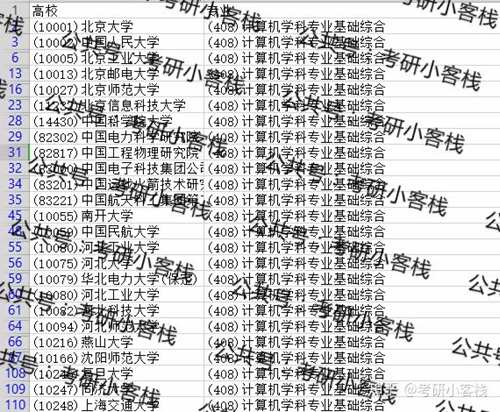 1 高校
(10001)北京大学 (408)计算机学科专业基础综合
3 中国人民大学 (408)计算机学科专业基础综合
6 (10005)北京工业大学 (408)计算机学科专业基础综合
13 (10013)北京邮电大学 (408)计算机学科专业基础综合
16 (10027)北京师范大学 (408)计算机学科专业基础综合
23 北京信息科技大学 (408)计算机学科专业基础综合
28 (14430)中国科学院大学 (408)计算机学科专业基础综合
29 (82302)中国电力科学研究院 (408)计算机学科专业基础综合
31 (82817)中国工程物理研究院 (408)计算机学科专业基础综合
32 中国电子科技集团公司 (408)计算机学科专业基础综合
34 (83201)中国运载火箭技术研究 (408)计算机学科专业基础综合
35 (83221)中国航天 集团第 (408)计算机学科专业基础综合
45 (10055)南开大学 (408)计算机学科专业基础综合
49 中国民航大学 (408)计算机学科专业基础综合
55 (408)计算机学科专业基础综合
56 (10075)河北大学 (408)计算机学科专业基础综合
59 (10079)华北电力大学(保定) (408)计算机学科专业基础综合
(10080)河北工业大学 (408)计算机学科专业基础综合
61 科技大学 (408)计算机学科专业基础综合
64 (10094)河北师范大学 (408)计算机学科专业基础综合
66 (10216)燕山大学 (408)计算机学科专业基础综合
(10166)沈阳师范大学 (408)计算机学科专业基础综合
108 复旦大学 (408)计算机学科专业基础综合
109 (10247)同济大学 (408)计算机学科专业基础综合
110 (10248)上海交通大学 (408)计算机学科专业基础综合
公共号 考研小客栈
知乎 @考研小客栈